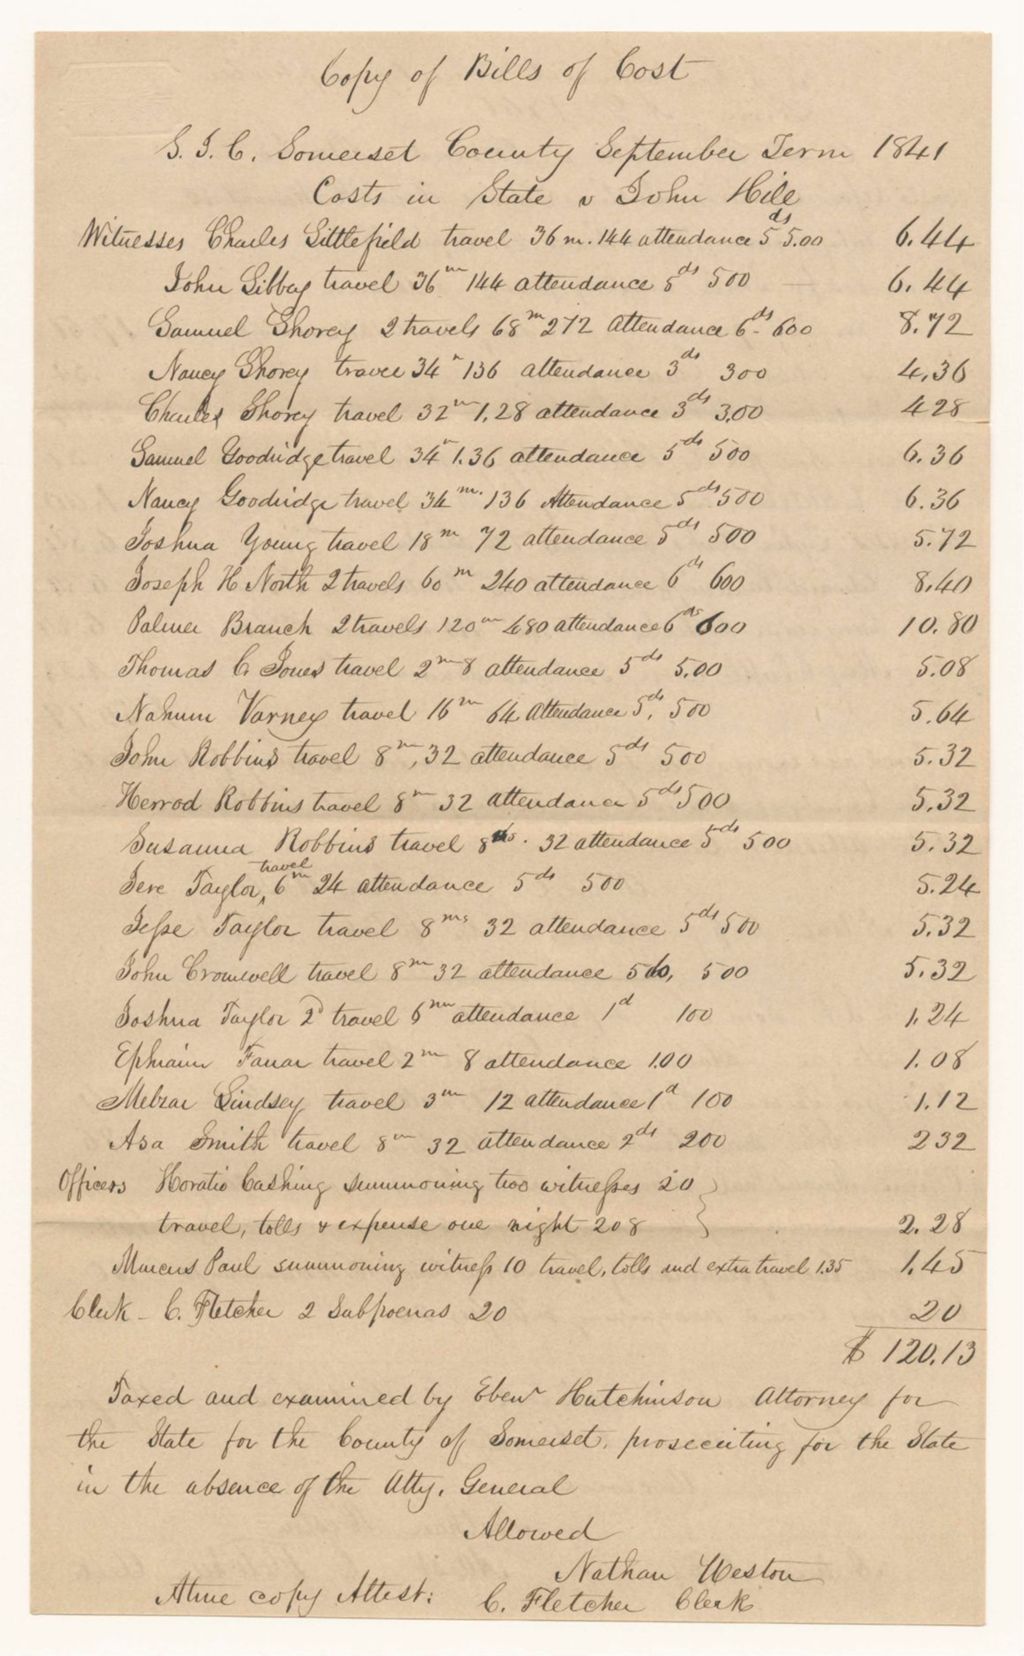 Copy of Bills of Cost
S. J. C. Somerset County September Term 1841
Costs in State v John Hile
Witnesses Charles Littlefield travel 36 m. 144 attendance 5ds 5.00 6.44
John Libbey travel 36m 144 attendance 5ds 500 6.44
Samuel Shorey 2 travels 68m 272 Attendance 6ds 600 8.72
Nancy Shorey travel 34m 136 attendance 3ds 300 4,36
Charles Shorey travel 32m 1,28 attendance 3ds 3,00 428
Samuel Goodridge travel 34m 1.36 attendance 5ds 500 6.36
Nancy Goodridge travel 34m. 136 Attendance 5ds 500 6.36
Joshua Young travel 18m 72 attendance 5ds 500 5.72
Joseph H North 2 travels 60m 240 attendance 6ds 600 8,40
Palmer Branch 2 travels 120m 480 attendance 6ds 600 10.80
Thomas C. Jones travel 2m 8 attendance 5ds 5.00 5.08
Nahum Varney travel 16m 64 Attendance 5ds, 500 5.64
John Robbins travel 8m, 32 attendance 5ds 500 5.32
Herrod Robbins travel 8m 32 attendance 5ds 500 5.32
Susanna Robbins travel 8ms. 32 attendance 5ds 500 5.32
Jere Taylor, travel 6m 24 attendance 5ds 500 5.24
Jesse Taylor travel 8ms 32 attendance 5ds 500 5.32
John Cromwell travel 8m 32 attendance 5ds, 500 5.32
Joshua Taylor 2d travel 6m attendance 1d 100 1.24
Ephraim travel 2m 8 attendance 1.00 1.08
Melzar Lindsey travel 3m 12 attendance 1d 100 1.12
Asa Smith travel 8m 32 attendance 2ds 200 232
Officers Horatio Cushing summoning two witnesses 20
travel, tolls & expense one night 208 2.28
Marcus Paul summoning witness 10 travel, tolls and extra travel 1.35 1.45
Clerk - C. Fletcher 2 Subpoenas 20 20
$ 120.13
Taxed and examined by Ebenr Hutchinson Attorney for
the State for the County of Somerset, prosecuting for the State
in the absence of the Atty. General
Allowed
Nathan Weston
A true copy Attest: C. Fletcher Clerk